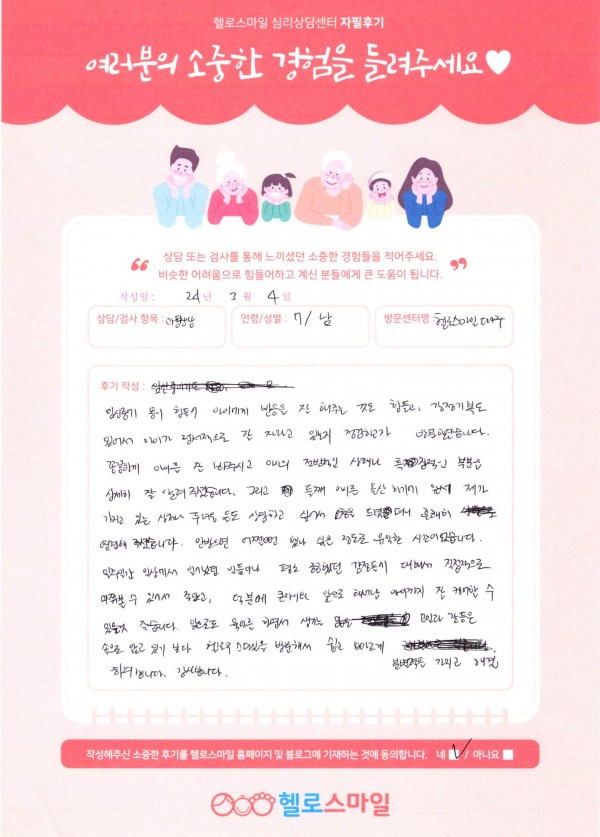 헬로스마일 심리상담센터 자필후기
여러분의 소중한 경험을 들려주세요♥
“ 상담 또는 검사를 통해 느끼셨던 소중한 경험들을 적어주세요.
비슷한 어려움으로 힘들어하고 계신 분들에게 큰 도움이 됩니다. ”
작성일 : 24년 3월 4일
상담/검사 항목 : 아동상담
연령/성별 : 7/남
방문센터명 : 헬로스마일
후기 작성 :
임신중기 몸이 힘들어 아이에게 반응을 잘 해주는 것도 힘들고, 감정기복도
있어서 아이가 정서적으로 잘 자라고 있는지 점검하고자 방문했습니다.
꼼꼼하게 아이를 잘 봐주시고 아이의 전반적인 상태나 특징적인 부분을
상세히 잘 알려주셨습니다. 그리고 둘째 아이를 출산하기에 앞서 제가
가지고 있는 상처나 두려움 등도 상담하고 싶어서 드렸더니
주셨습니다. 안받으면 어쩔뻔 했나 싶은 정도로 유익한 시간이었습니다.
일상에서 평소 궁금했던 감정들에 대해서 직접적으로
여쭤볼 수 있어서 좋았고, 덕분에 큰아이나 앞으로 태어날 아이까지 잘 케어할 수
있을것 같습니다. 앞으로도 육아를 하면서 생기는 고민과 갈등은
손으로 안고 있기 보다 헬로스마일을 방문해서 쉽고 빠르게
가지고 해결
하려합니다. 감사합니다.
작성해주신 소중한 후기를 헬로스마일 홈페이지 및 블로그에 기재하는 것에 동의합니다. 네 ✓ / 아니요
헬로스마일